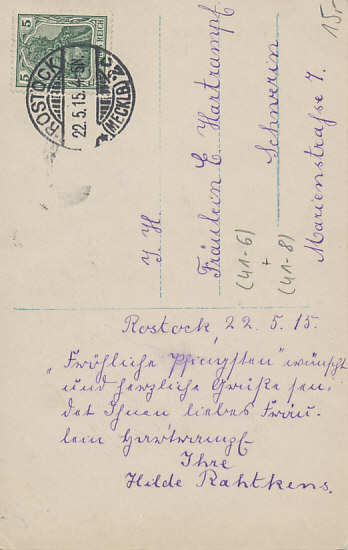 15.-
5
REICH
5
ROSTOCK
22.5.15.
(MECKLB)
J. H.
Fräulein E Hartrampf
Schwerin
Marienstraße 7.
(41-6)
+
(41-8)
Rostock, 22. 5. 15.
„Fröhliche Pfingsten" wünscht
und herzliche Grüße sen-
det Ihnen liebes Fräu-
lein Hartrampf
Ihre
Hilde Rahtkens.